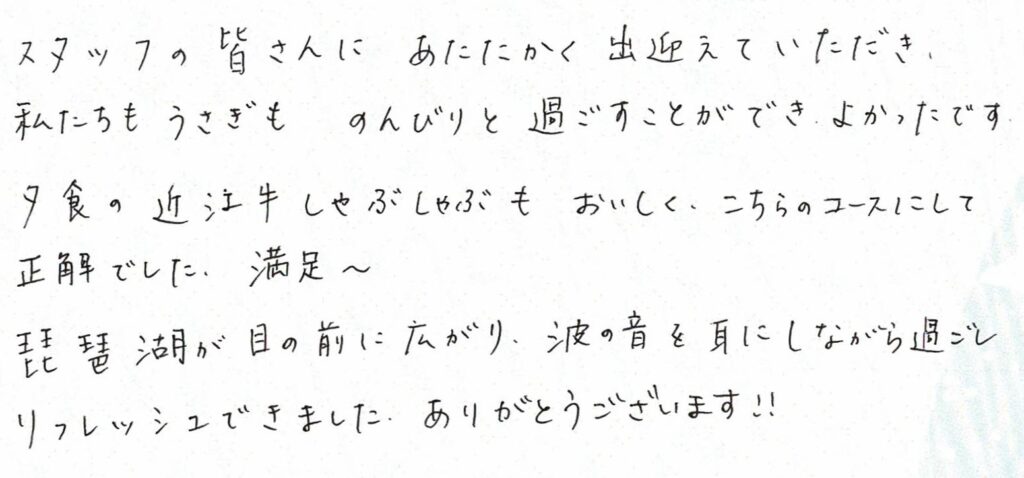 スタッフの皆さんに あたたかく 出迎えていただき、
私たちも うさぎも のんびりと 過ごすことができ、よかったです
夕食の 近江牛しゃぶしゃぶも おいしく、こちらのコースにして
正解でした。満足〜
琵琶湖が 目の前に 広がり、波の音を 耳にしながら過ごし
リフレッシュできました。ありがとうございます!!